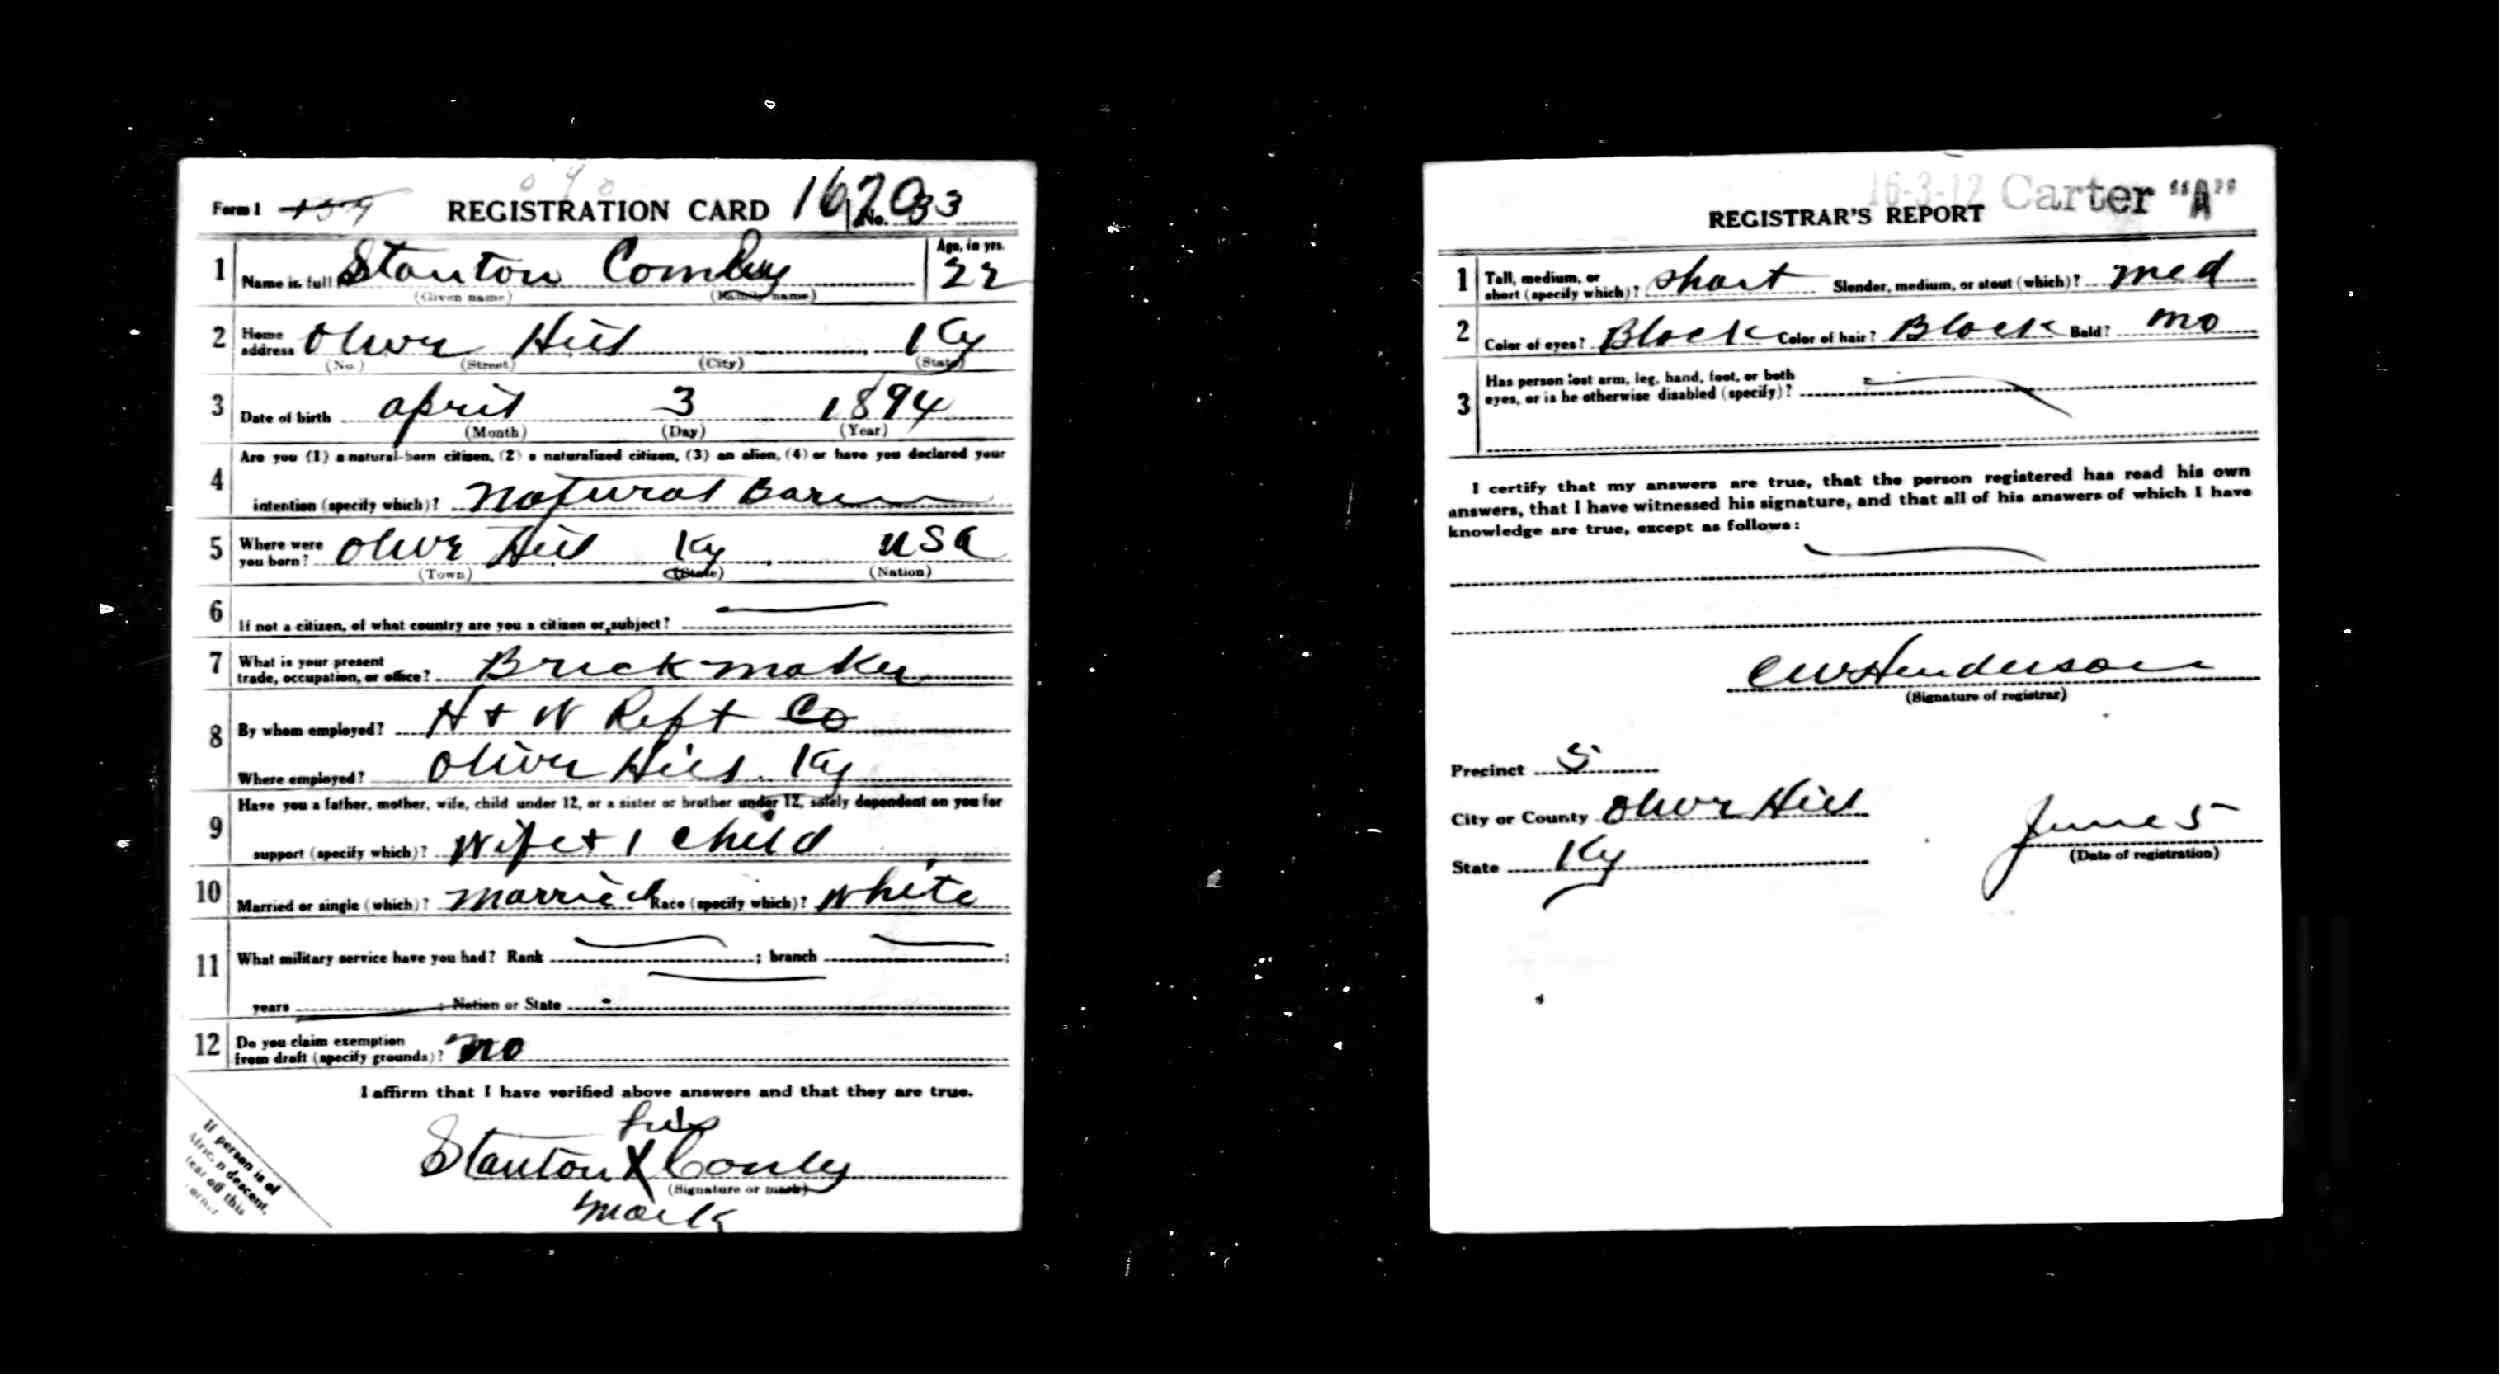 Form 1 REGISTRATION CARD No. 33
1 Name in full Stanton Comley Age, in yrs. 22
(Given name) (Family name)
2 Home address Olive Hill Ky
(No.) (Street) (City) (State)
3 Date of birth April 3 1894
(Month) (Day) (Year)
4 Are you (1) a natural-born citizen, (2) a naturalized citizen, (3) an alien, (4) or have you declared your
intention (specify which)? Natural Born
5 Where were you born? Olive Hill Ky USA
(Town) (State) (Nation)
6 If not a citizen, of what country are you a citizen or subject?
7 What is your present trade, occupation, or office? Brick maker
8 By whom employed? H + W Reft Co
Where employed? Olive Hill Ky
9 Have you a father, mother, wife, child under 12, or a sister or brother under 12, solely dependent on you for
support (specify which)? Wife + 1 child
10 Married or single (which)? Married Race (specify which)? White
11 What military service have you had? Rank ; branch ;
years ; Nation or State
12 Do you claim exemption from draft (specify grounds)? no
I affirm that I have verified above answers and that they are true.
his
Stanton X Conley
(Signature or mark)
mark
If person is of
African descent,
tear off this
corner
16-3-12 Carter "A"
REGISTRAR'S REPORT
1 Tall, medium, or short (specify which)? short Slender, medium, or stout (which)? med
2 Color of eyes? Black Color of hair? Black Bald? no
3 Has person lost arm, leg, hand, foot, or both
eyes, or is he otherwise disabled (specify)?
I certify that my answers are true, that the person registered has read his own
answers, that I have witnessed his signature, and that all of his answers of which I have
knowledge are true, except as follows:
C W Henderson
(Signature of registrar)
Precinct 5
City or County Olive Hill
State Ky
June 5
(Date of registration)